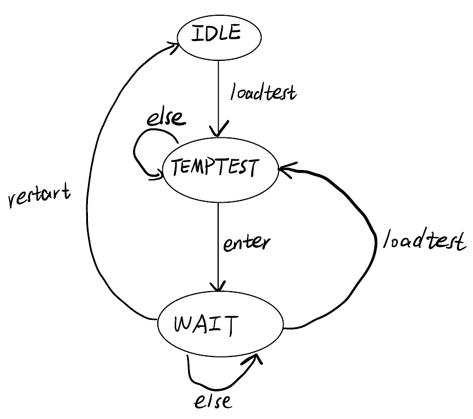 IDLE
loadtest
else
TEMPTEST
restart
enter
loadtest
WAIT
else